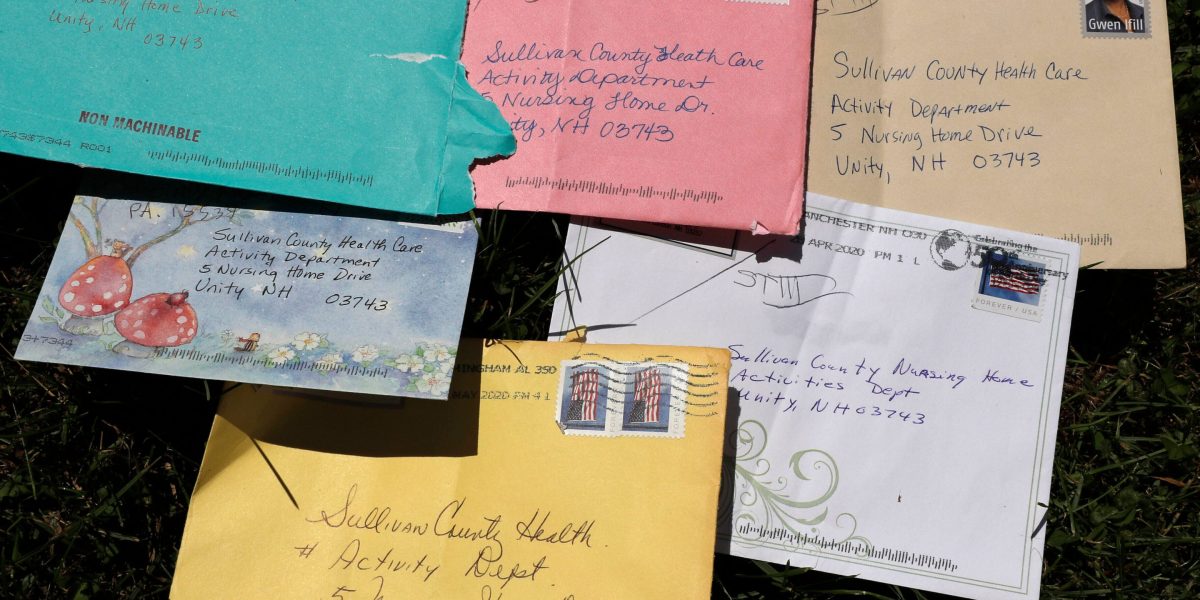 Nursing Home Drive
Unity, NH
03743
NON MACHINABLE
R001
Sullivan County Heath Care
Activity Department
5 Nursing Home Dr.
ity, NH 03743
Gwen Ifill
Sullivan County Health Care
Activity Department
5 Nursing Home Drive
Unity, NH 03743
PA. 15537
Sullivan County Health Care
Activity Department
5 Nursing Home Drive
Unity NH 03743
ANCHESTER NH 030
APR 2020 PM 1 L
Celebrating the
50th Anniversary
FOREVER / USA
Sullivan County Nursing Home
Activities Dept
Unity, NH 03743
INGHAM AL 350
MAY 2020 PM 4 1
Sullivan County Health
# Activity Dept.
5